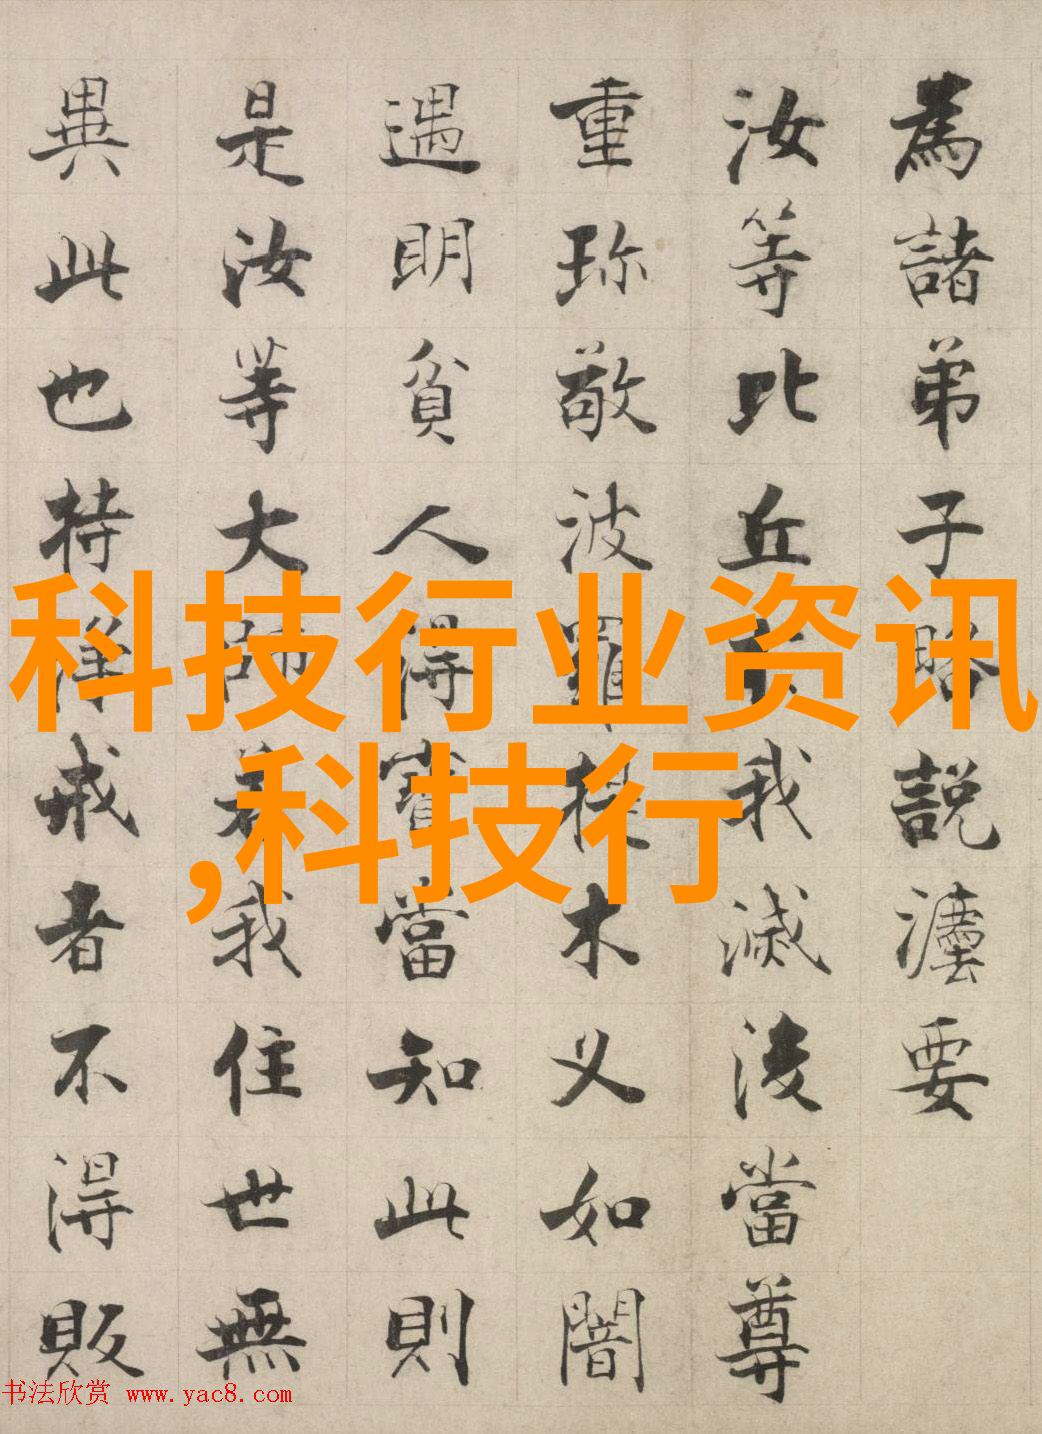 為諸弟子略說灋要
汝等比丘我滅後當尊
重珎敬波羅提木叉如闇
遇明貧人得寶當知此則
是汝等大師若我住世無
異此也持淨戒者不得販
科技行业资讯
,科技行
书法欣赏 www.yac8.com